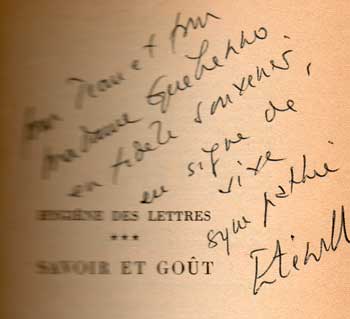 pour Jean et pour
madame Guéhenno.
en fidèle souvenir,
en signe de
vive
sympathie
Etiemble
HYGIÈNE DES LETTRES
***
SAVOIR ET GOÛT